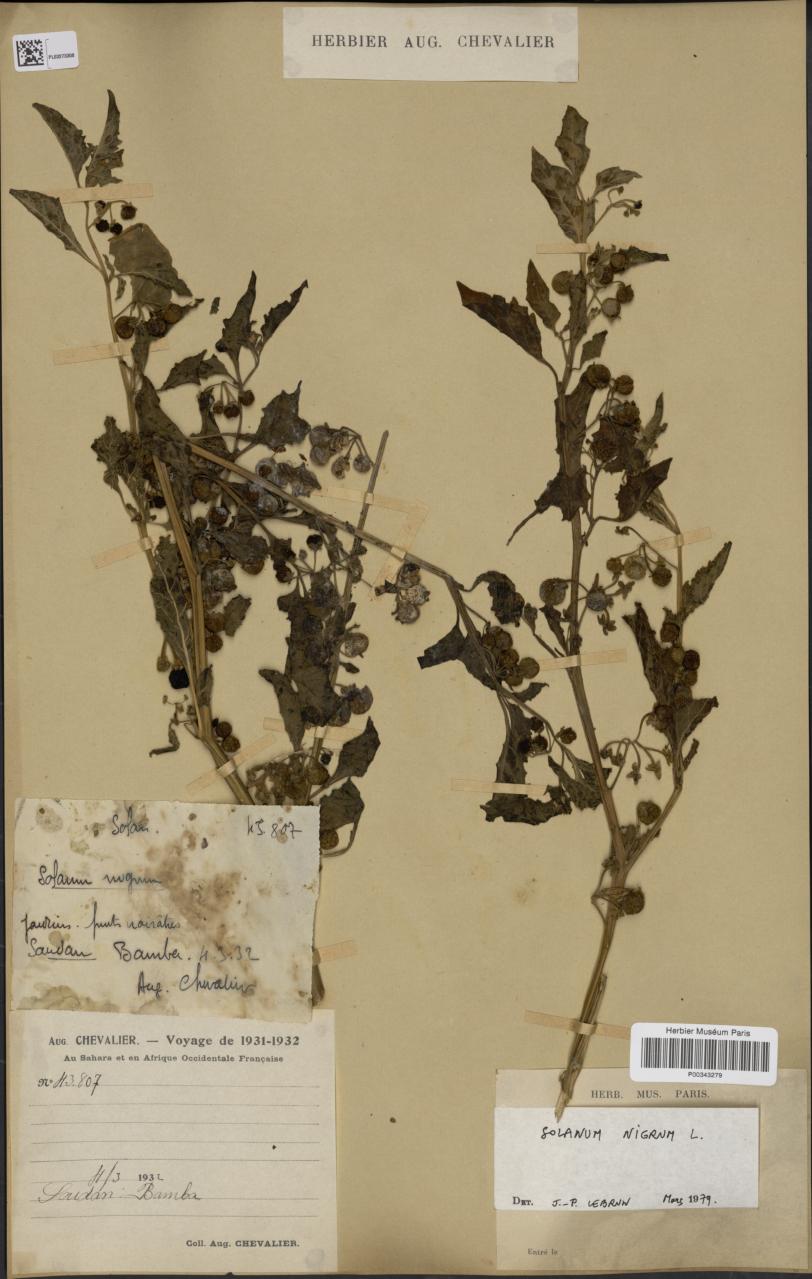 HERBIER AUG. CHEVALIER
Solan.
43.807
Solanum nigrum
jardins. fruits noirâtres
Soudan Bamba. 4.3.32
Aug. Chevalier
AUG. CHEVALIER. — Voyage de 1931-1932
Au Sahara et en Afrique Occidentale Française
N° 43.807
4/3 1932
Soudan: Bamba
Coll. Aug. CHEVALIER.
Herbier Muséum Paris
P00343279
HERB. MUS. PARIS.
SOLANUM NIGRUM L.
DET. J.-P. LEBRUN Mars 1979.
Entré le